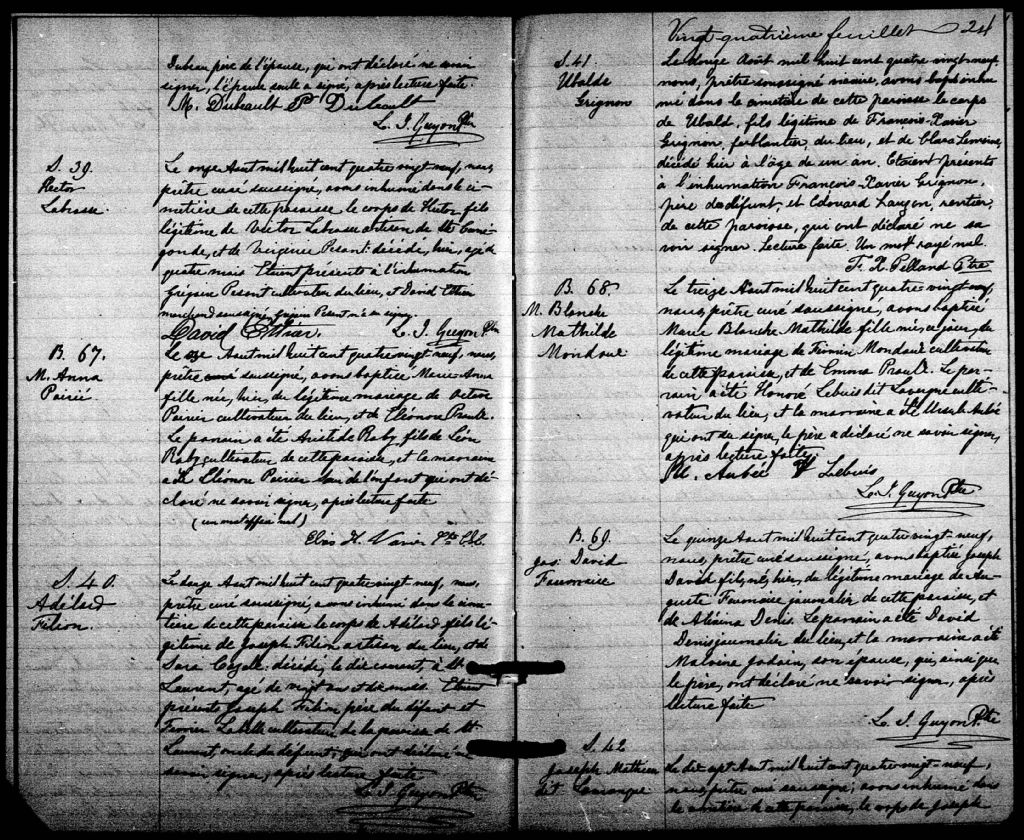 Dubeau père de l'épouse, qui ont déclaré ne savoir
signer, l'épouse seule a signé, après lecture faite.
M. Dubeault P Dubeault
L. J. Guyon Ptre
S. 39.
Hector
Labrosse.
Le onze Aout mil huit cent quatre vingt neuf, nous,
prêtre curé soussigné, avons inhumé dans le ci-
metière de cette paroisse le corps de Hector fils
légitime de Victor Labrosse artisan de Ste Cuné-
gonde, et de Virginie Pesant: décédé, hier, agé de
quatre mois Etaient présents à l'inhumation
Grégoire Pesant cultivateur du lieu, et David Ethier
marchand soussigné, Grégoire Pesant n'a su signer.
David Ethier. L. J. Guyon Ptre
B. 67.
M. Anna
Poirié
Le onze Aout mil huit cent quatre vingt neuf, nous,
prêtre curé soussigné, avons baptisé Marie Anna
fille née, hier, du légitime mariage de Octave
Poirier cultivateur du lieu, et de Eléonore Prault.
Le parrain a été Aristide Raby fils de Léon
Raby cultivateur de cette paroisse, et la marraine
a été Eléonore Poirier de l'enfant qui ont dé-
claré ne savoir signer, après lecture faite
(un mot nul)
S. 40.
Adélard
Filion.
Le douze Aout mil huit cent quatre vingt neuf, nous,
prêtre curé soussigné, avons inhumé dans le cime-
tière de cette paroisse le corps de Adélard fils lé-
gitime de Joseph Filion artisan du lieu, et de
Sara décédé, le dix courant, à St.
Laurent, agé de vingt ans et dix mois. Etaient
présents Joseph Filion père du défunt et
Labelle cultivateur de la paroisse de St
Laurent, oncle du défunt, qui ont déclaré ne
savoir signer, après lecture faite
L. J. Guyon Ptre
Vingt quatrième feuillet 24
S. 41.
Ubalde
Grignon
Le douze Août mil huit cent quatre vingt neuf
nous, prêtre soussigné vicaire, avons inhu-
mé dans le cimetière de cette paroisse le corps
de Ubald, fils légitime de François-Xavier
Grignon, ferblantier, du lieu, et de Clara Lemoine,
décédé hier à l'âge de un an. Etaient présents
à l'inhumation François-Xavier Grignon,
père du défunt, et Edouard Lauzon, rentier,
de cette paroisse, qui ont déclaré ne sa-
voir signer. Lecture faite. Un mot rayé nul.
F. X. Pelland Ptre
B. 68.
M. Blanche
Mathilde
Mondoux
Le treize Aout mil huit cent quatre vingt neuf,
nous, prêtre curé soussigné, avons baptisé
Marie Blanche Mathilde fille née, ce jour, du
légitime mariage de Firmin Mondoux cultivateur
de cette paroisse, et de Emma Prault. Le par-
rain a été Honoré Lebuis dit Lavergne culti-
vateur du lieu, et la marraine a été Ursule Aubé
qui ont su signer, le père a déclaré ne savoir signer,
après lecture faite,
Aubée H Lebuis
L. J. Guyon Ptre
B. 69.
Jos. David
Fournaise
Le quinze Aout mil huit cent quatre vingt neuf,
nous, prêtre curé soussigné, avons baptisé Joseph
David fils, né, hier, du légitime mariage de Au-
guste Fournaise journalier de cette paroisse, et
de Denis. Le parrain a été David
Denis journalier du lieu, et la marraine a été
Malvina Jodoin, son épouse, qui, ainsi que
le père, ont déclaré ne savoir signer, après
lecture faite
L. J. Guyon Ptre
S. 42
Joseph Mathieu
dit Lamarque
Le dix sept Aout mil huit cent quatre vingt neuf,
nous prêtre curé soussigné, avons inhumé dans
le cimetière de cette paroisse, le corps de Joseph